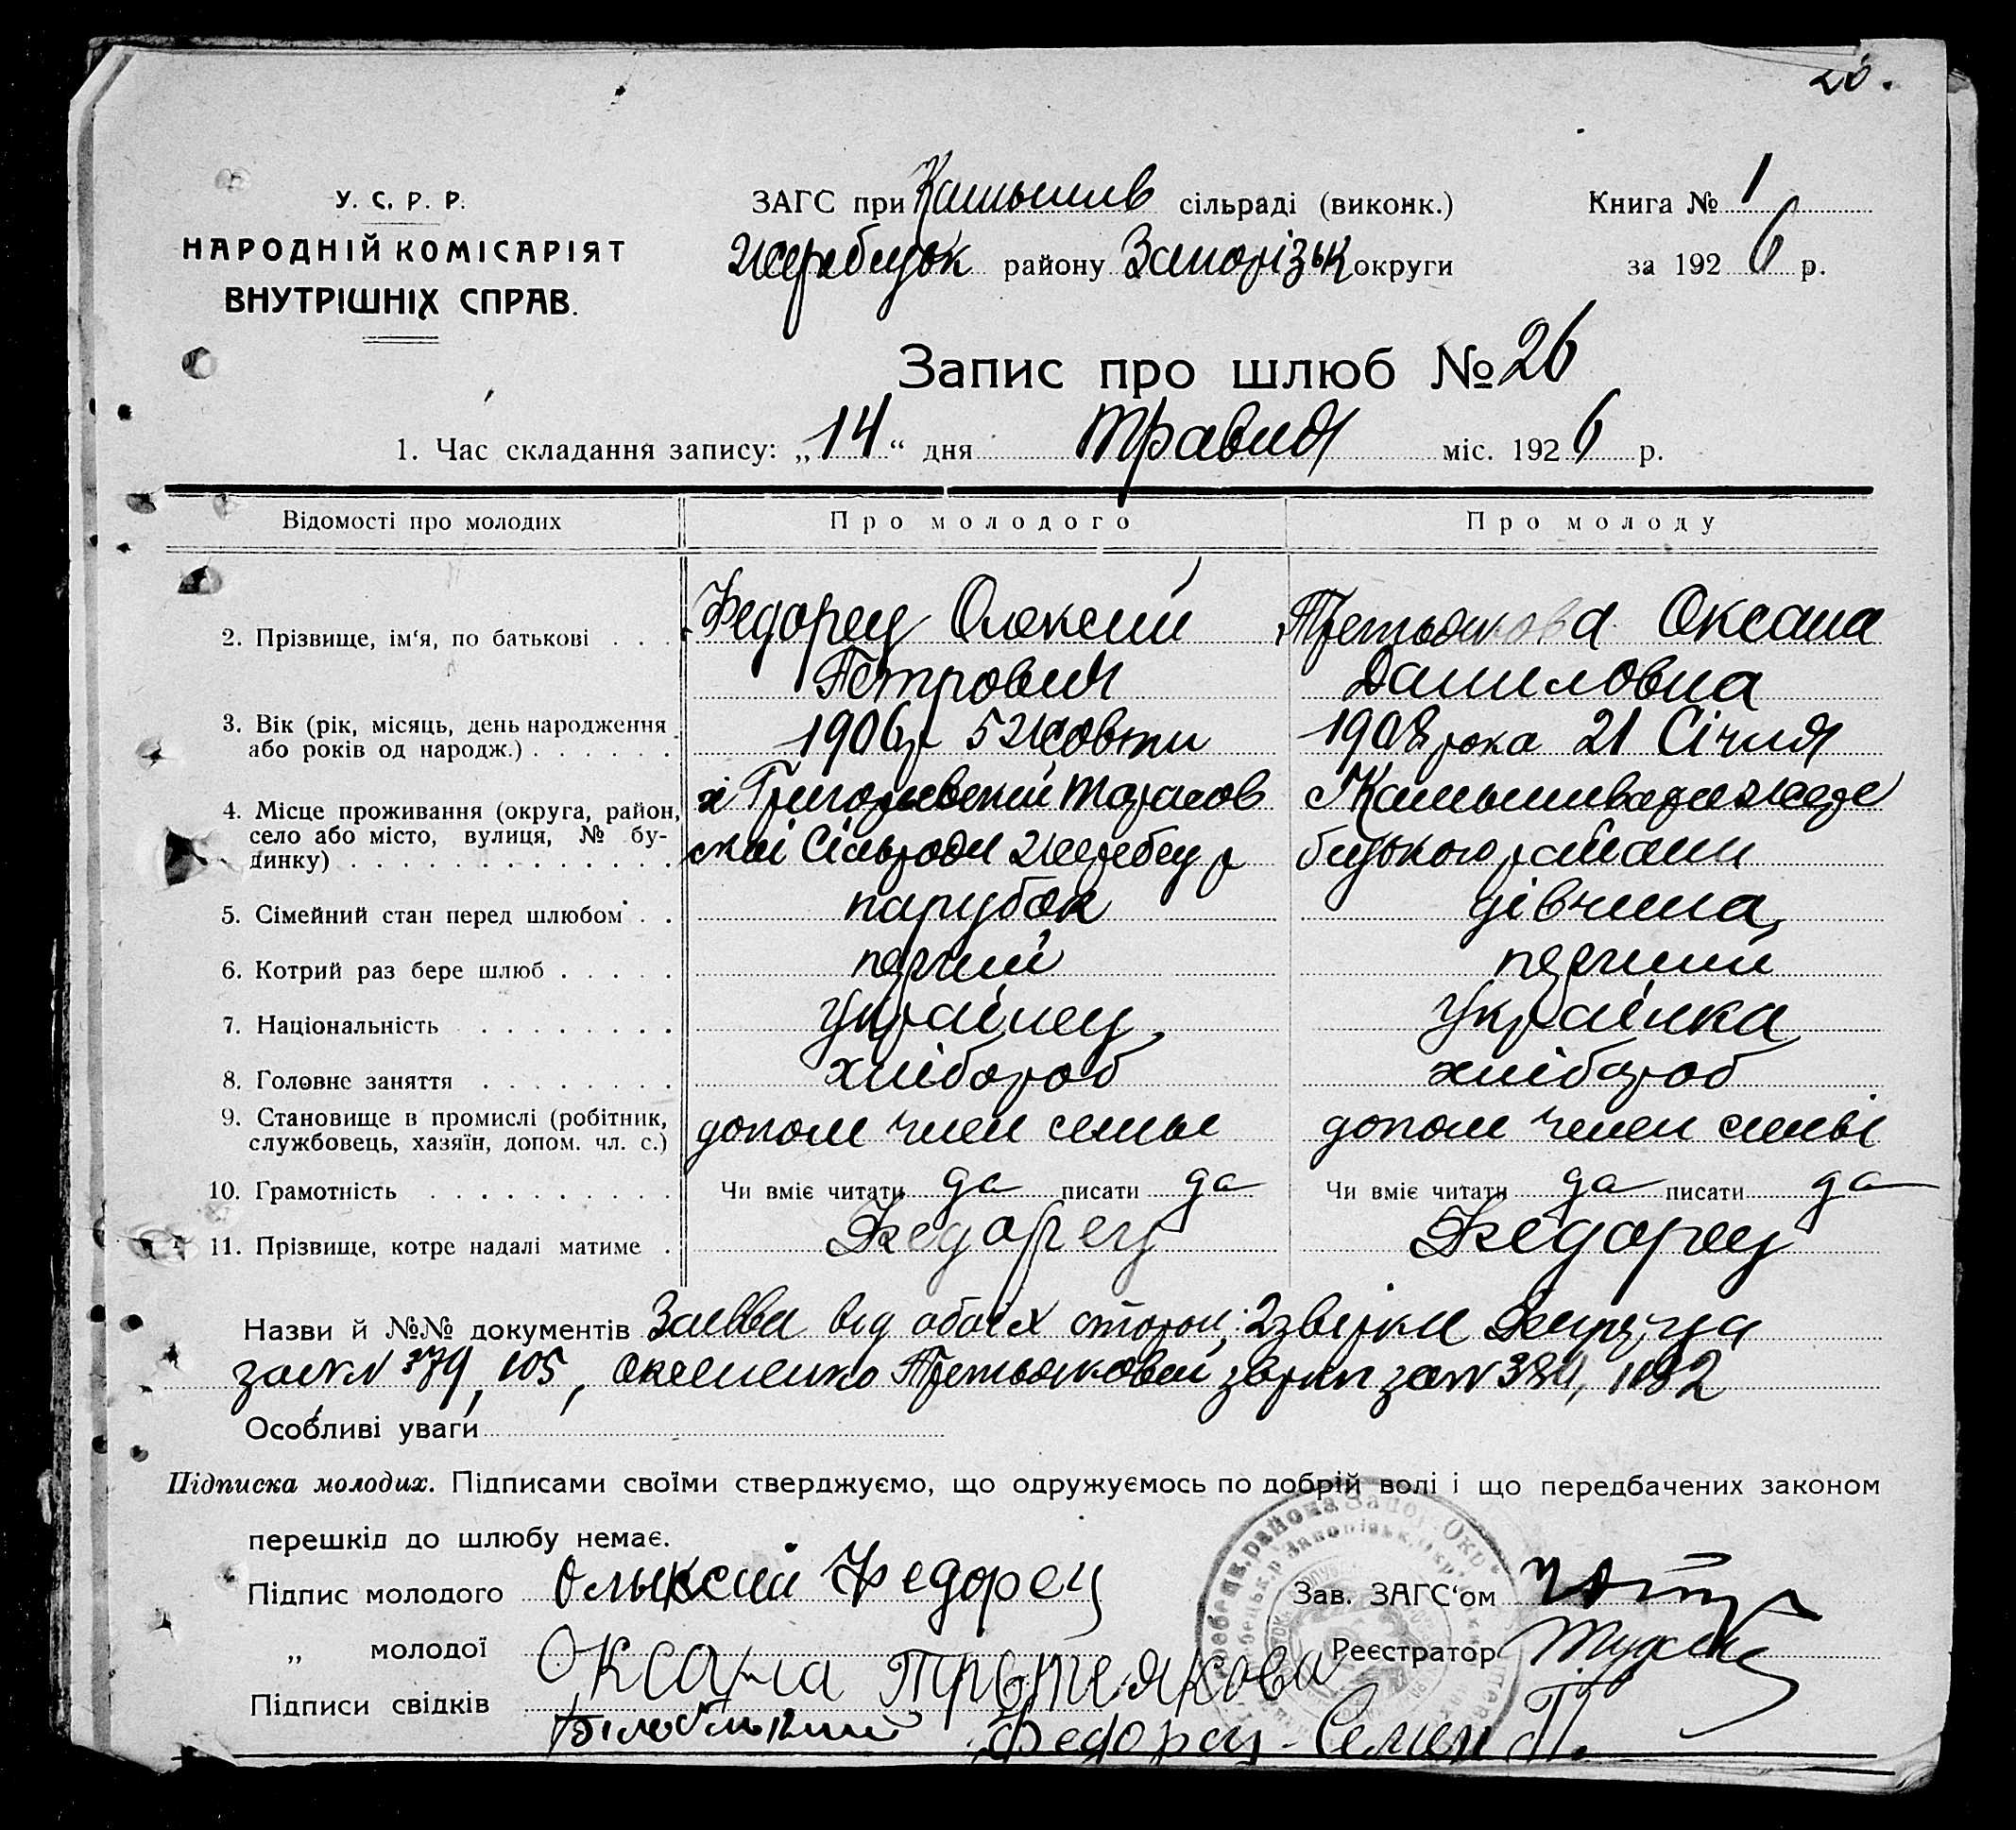 20.
У. С. Р. Р.
НАРОДНІЙ КОМІСАРІЯТ
ВНУТРІШНІХ СПРАВ.
ЗАГС при Камышив сільраді (виконк.)
жеребецьк району Запорізьк округи
Книга № 1
за 1926 р.
Запис про шлюб № 26
1. Час складання запису: „14“ дня травня міс. 1926 р.
Відомості про молодих Про молодого Про молоду
2. Прізвище, ім‘я, по батькові . . . Федорец Олексій Третьякова Оксана
Петрович Даниловна
3. Вік (рік, місяць, день народження або років од народж.) . . . . . . 1906 р 5 Жовтн 1908 рока 21 Січня
4. Місце проживання (округа, район, село або місто, вулиця, № будинку) . . . х Григорьевский Тарасов с Камышеваха жере
скої Сільради Жеребец р бецького района
5. Сімейний стан перед шлюбом . . парубок дівчина
6. Котрий раз бере шлюб . . . . . перший перший
7. Національність . . . . . . . . Українец українка
8. Головне заняття . . . . . . . . хлібороб хлібороб
9. Становище в промислі (робітник, службовець, хазяїн, допом. чл. с.) допом член семьи допом член семьї
10. Грамотність . . . . . . . . . . Чи вміє читати да писати да Чи вміє читати да писати да
11. Прізвище, котре надалі матиме . Федорец Федорец
Назви й №№ документів Заявка від обоїх сторон; 2 звірки
за №№ 379, 105, Третьяковой за №
Особливі уваги
Підписка молодих. Підписами своїми стверджуємо, що одружуємось по добрій волі і що передбачених законом
перешкід до шлюбу немає.
Підпис молодого Олыксий Федорец
Зав. ЗАГС‘ом
„ молодої Оксана Третеякова
Реєстратор
Підписи свідків Федорец Семен П.